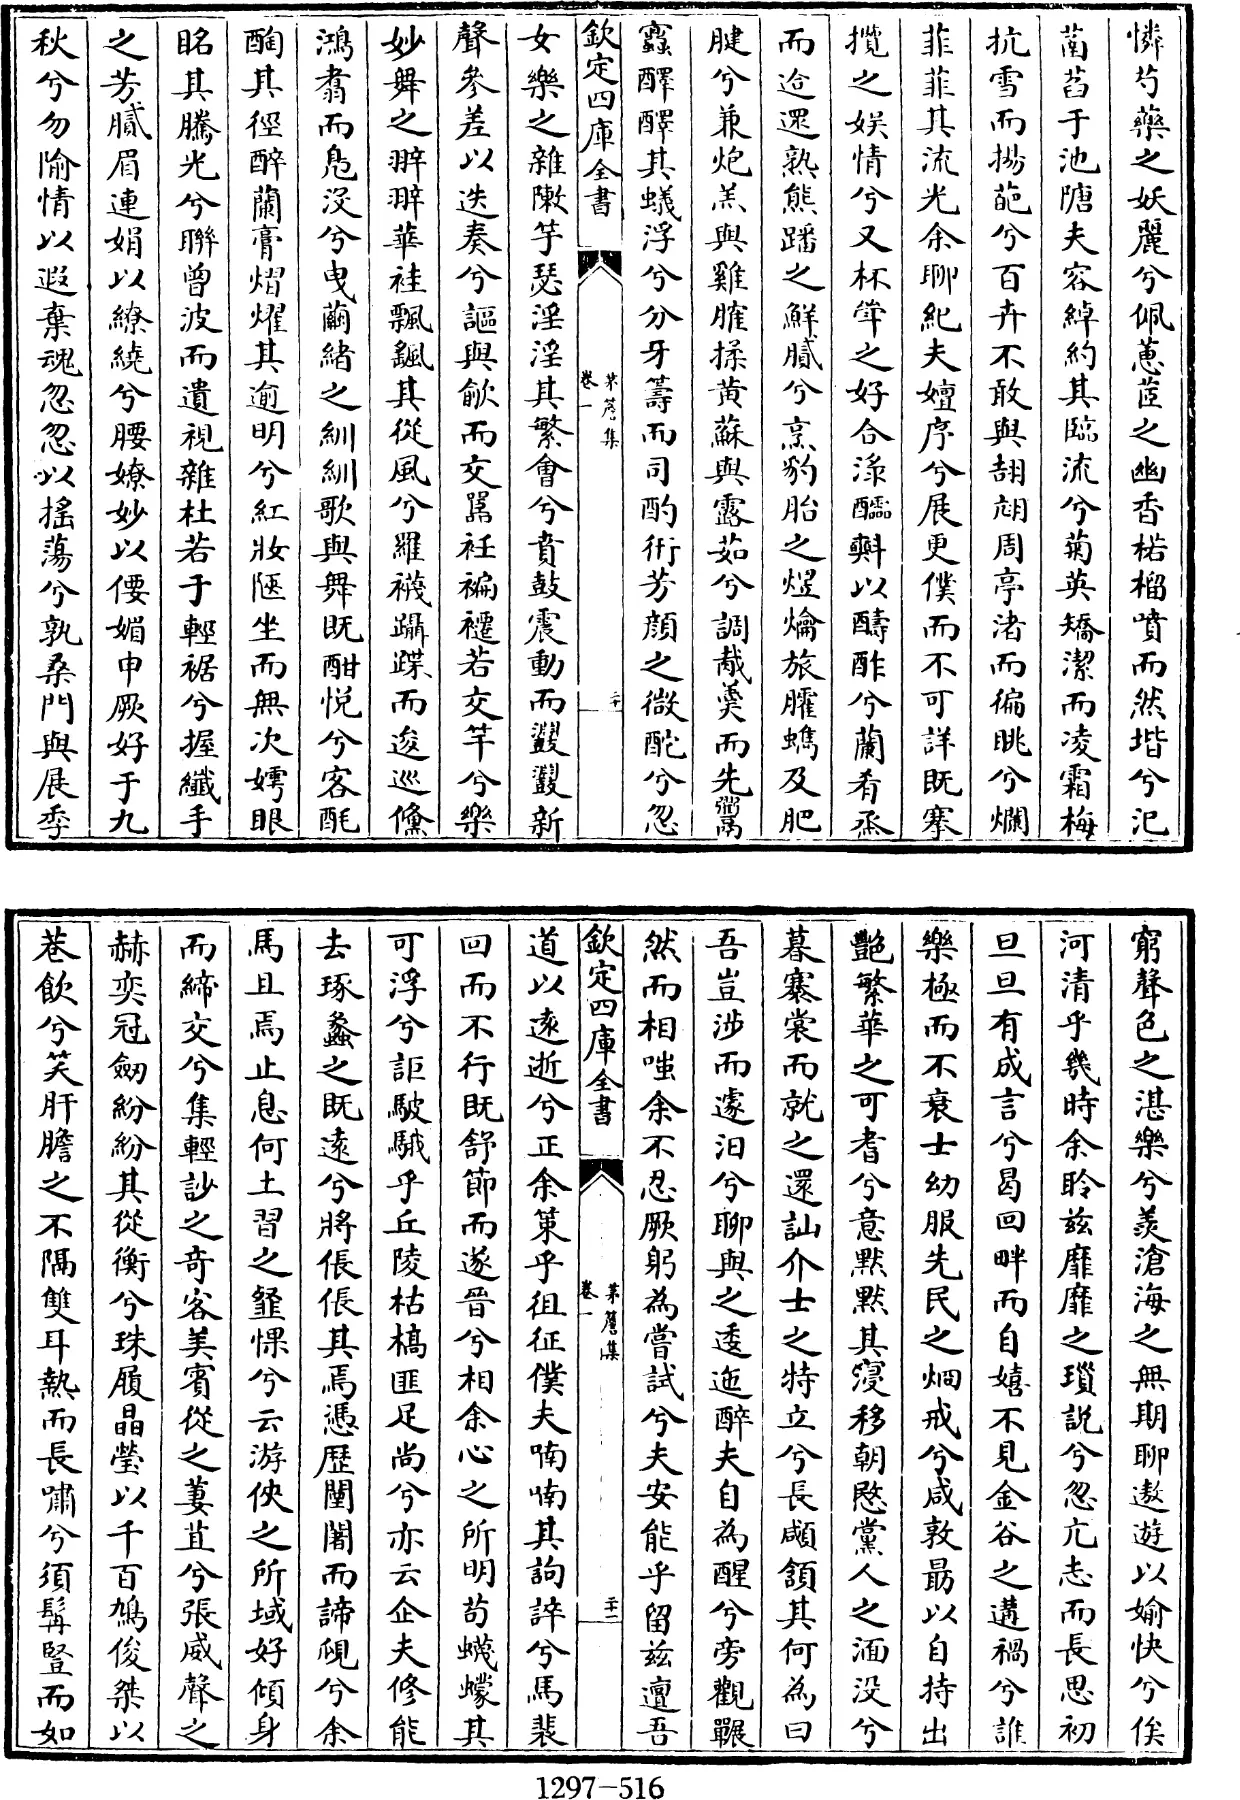 憐芍藥之妖麗兮佩蕙茝之幽香楉榴噴而然堦兮氾
菡萏于池塘夫容綽約其臨流兮菊英矯潔而凌霜梅
抗雪而揚葩兮百卉不敢與頡頏周亭渚而徧眺兮爛
菲菲其流光余聊紀夫嬗序兮展更僕而不可詳既搴
攬之娱情兮又杯斝之好合淥醽㪺以醻酢兮蘭肴烝
而迨還熟熊蹯之鮮膩兮烹豹胎之煜爚旅臛蠵及肥
腱兮兼炮羔與雞臛揉黄蘇與露茹兮調胾羹而先鬻
醽醳醳其蟻浮兮分牙籌而司酌衎芳顔之微酡兮忽
欽定四庫全書
弇詹集
卷一
二十
女樂之雜陳竽瑟淫淫其繁會兮賁鼓震動而鼝鼝新
聲參差以迭奏兮謳與歈而交嚣衽褊褼若交竿兮樂
妙舞之翂翂華袿飄颻其從風兮羅襪躡蹀而逡巡儵
鴻翥而鳧沒兮曳繭緒之紃紃歌與舞既酣悦兮客酕
醄其徑醉蘭膏熠燿其逾明兮紅妝匽坐而無次嫮眼
眳其騰光兮聯曾波而遺視雜杜若于輕裾兮握纖手
之芳膩眉連娟以繚繞兮腰嫽妙以偠媚申厥好于九
秋兮勿隃情以遐棄魂忽忽以摇蕩兮孰桑門與展季
窮聲色之湛樂兮羡滄海之無期聊遨遊以媮快兮俟
河清乎幾時余聆兹靡靡之瑣説兮忽亢志而長思初
旦旦有成言兮曷回畔而自嬉不見金谷之遘禍兮誰
樂極而不衰士幼服先民之炯戒兮咸敦朂以自持出
艷繁華之可耆兮意默默其寖移朝愍黨人之湎没兮
暮褰裳而就之還訕介士之特立兮長顑頷其何為曰
吾豈涉而遽汩兮聊與之逶迤醉夫自為醒兮旁觀囅
然而相嗤余不忍厥躬為嘗試兮夫安能乎留兹邅吾
欽定四庫全書
弇詹集
卷一
二十一
道以逺逝兮正余策乎徂征僕夫喃喃其詢誶兮馬裴
回而不行既舒節而遂晉兮相余心之所明苟蠛蠓其
可浮兮詎駊騀乎丘陵枯槁匪足尚兮亦云企夫修能
去琢蠡之既逺兮將倀倀其焉憑歷闉闍而諦覛兮余
馬且焉止息何土習之䤥惈兮云游俠之所域好傾身
而締交兮集輕訬之奇客美賓從之萋苴兮張威聲之
赫奕冠劒紛紛其從衡兮珠履晶瑩以千百鳩俊桀以
巷飲兮笑肝膽之不隔雙耳熱而長嘯兮須髯豎而如
1297-516